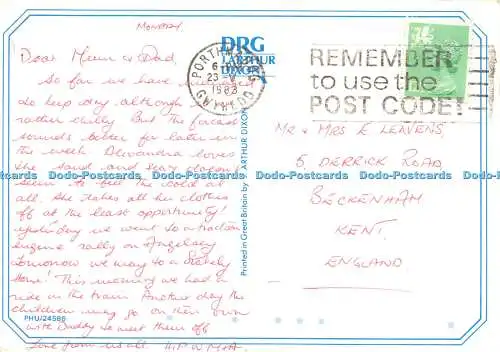 MONDAY
Dear Mum & Dad,
So far we have managed
to keep dry although
rather chilly. But the forecast
sounds better for later in
the week. Alexandra loves
the sand and sea doesn't
seem to feel the cold at
all. She takes all her clothes
off at the least opportunity!
Yesterday we went to a traction
engine rally on Anglesey
tomorrow we may to a Stately
Home! This morning we had a
ride in the train. Another day the
children may go on their own
with Daddy to meet them off
Love from us all.
PHU/24586
DRG
ARTHUR
DIXON
Printed in Great Britain by ARTHUR DIXON
PORTHMADOG
23 V
1983
GWYNEDD
REMEMBER
to use the
POST CODE!
MR & MRS E LEAVENS,
5 DERRICK ROAD
BECKENHAM
KENT.
ENGLAND
Dodo-Postcards Dodo-Postcards Dodo-Postcards Dodo-Postcards Dodo-Postcards Dodo-Postcards